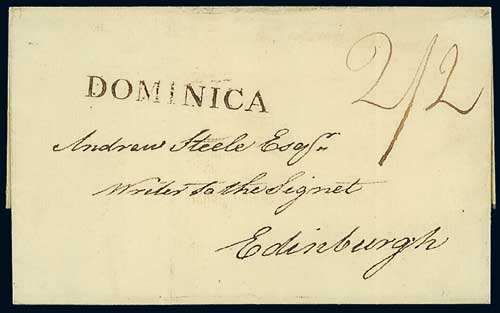 2/2
DOMINICA
Andrew Steele Esqr.
Writer to the Signet
Edinburgh